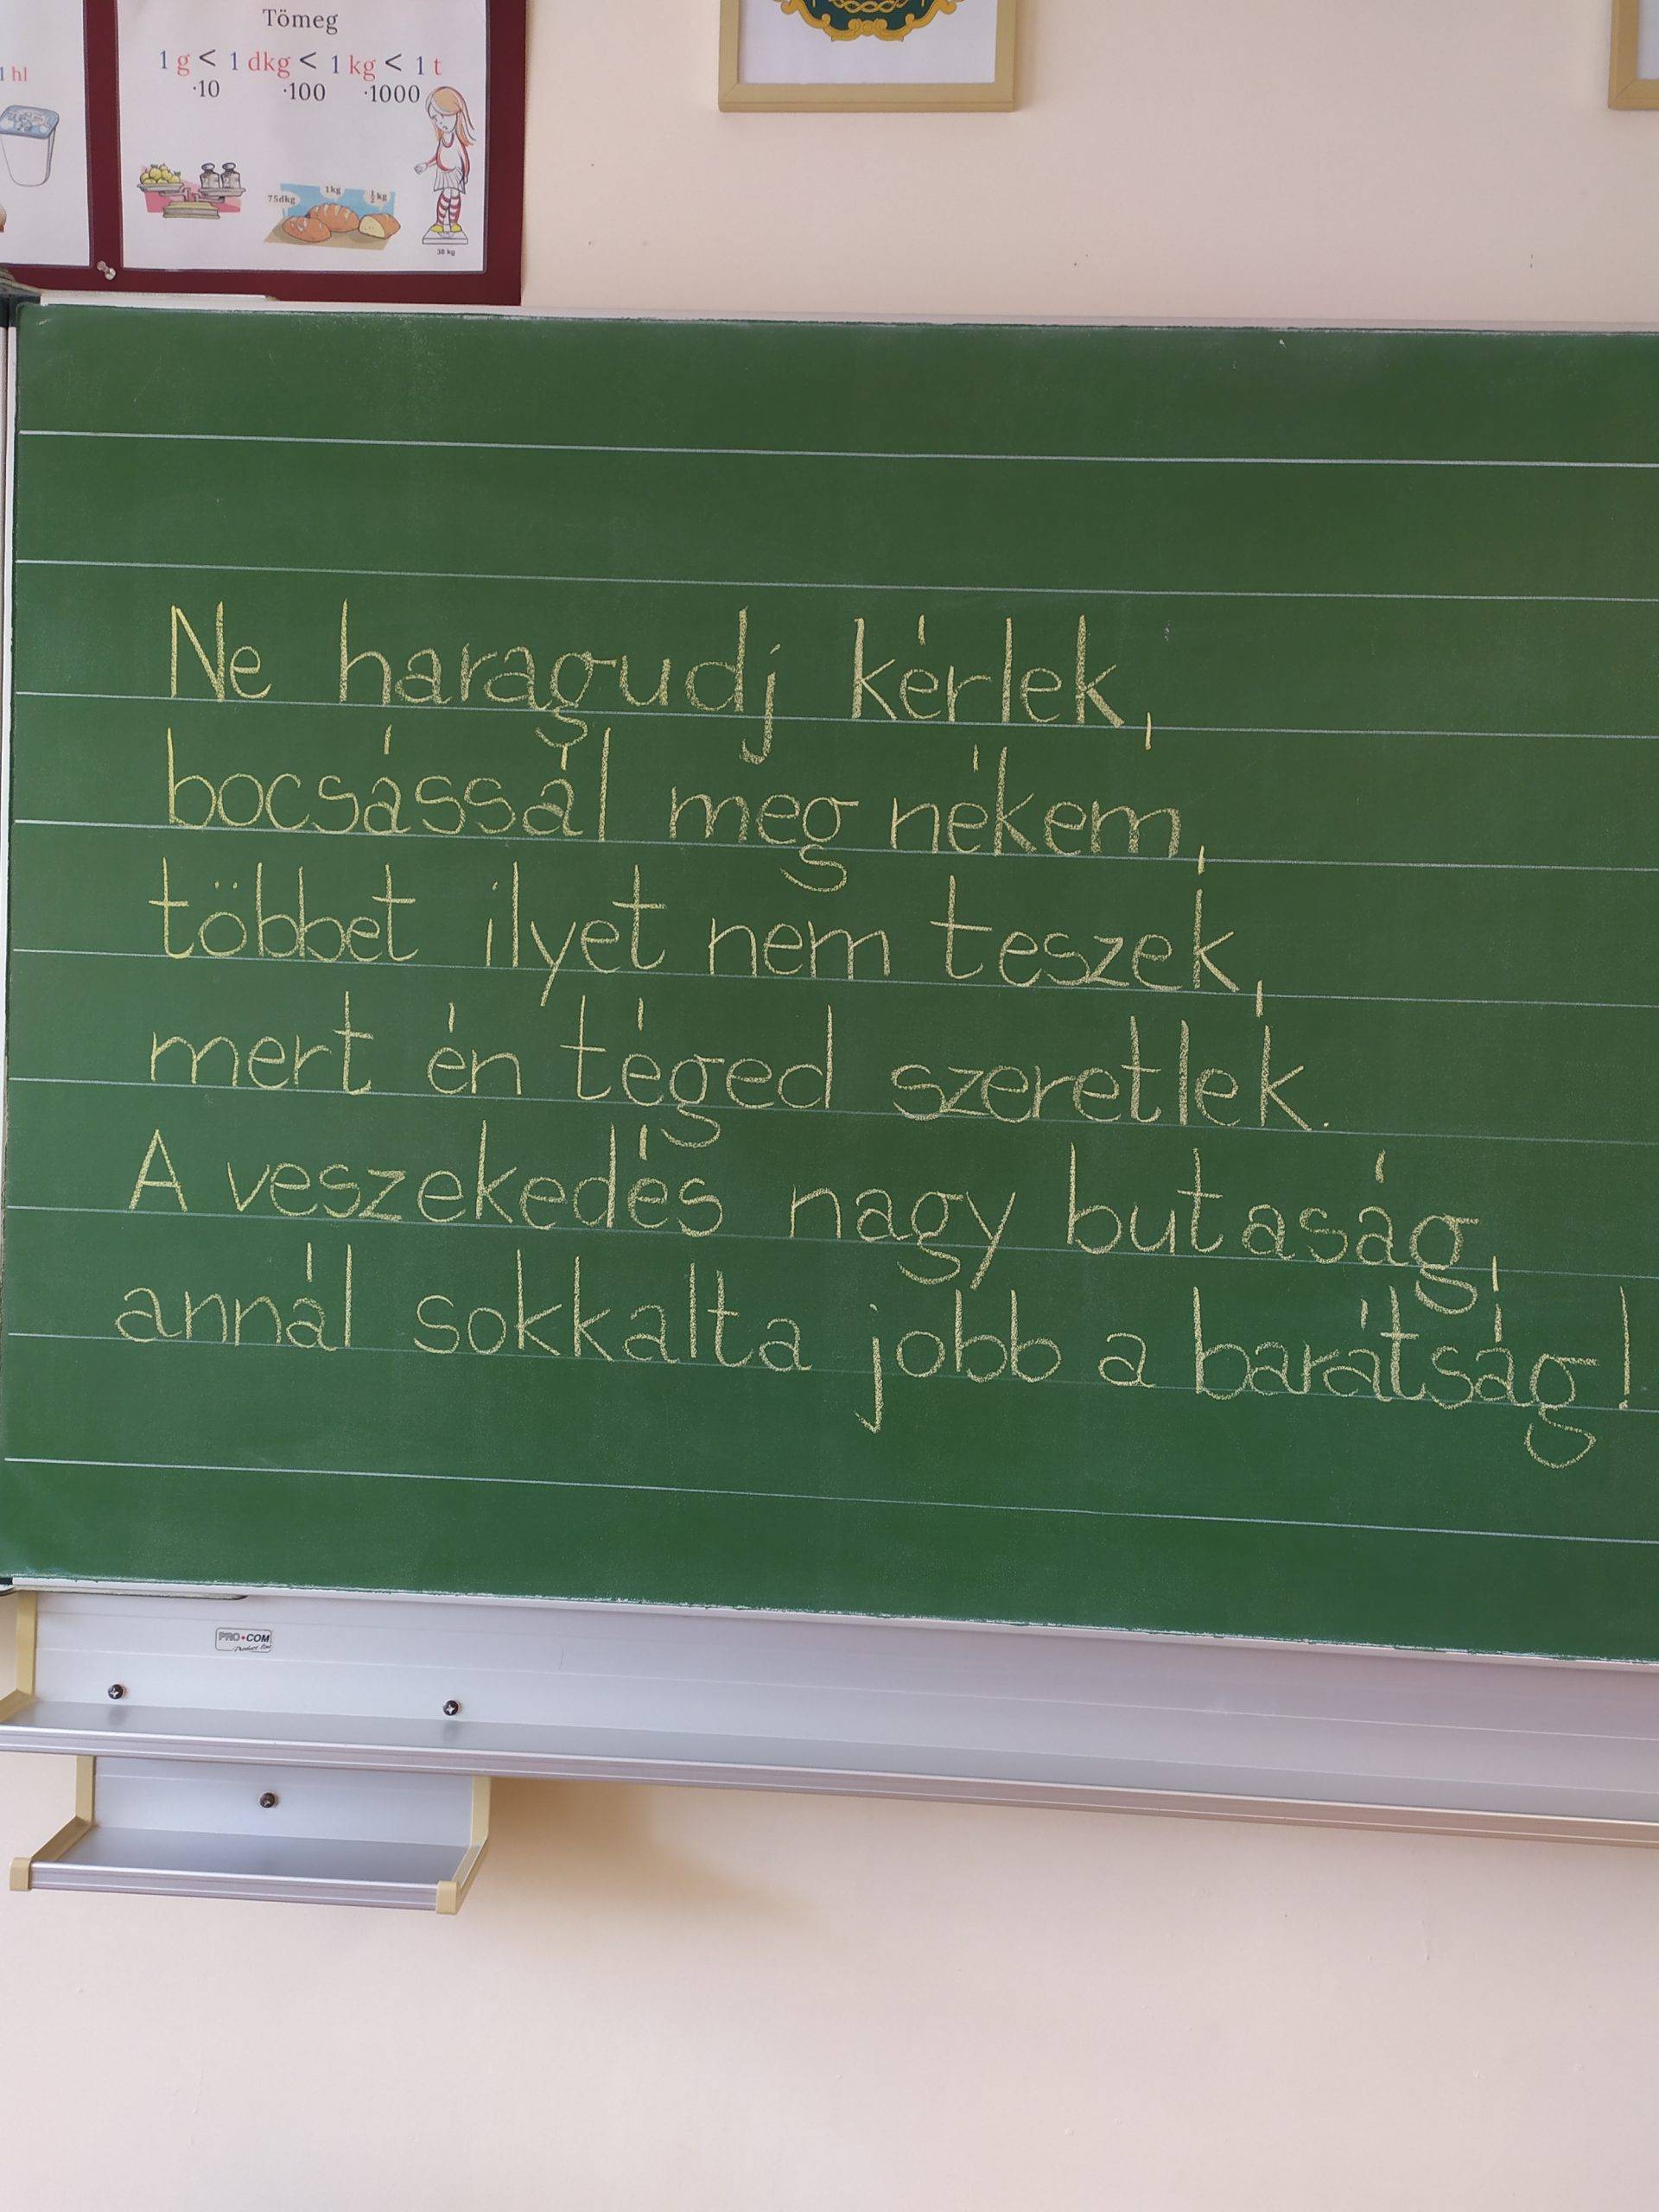 Tömeg
1 hl
1 g < 1 dkg < 1 kg < 1 t
·10 ·100 ·1000
75dkg 1kg ½kg
38 kg
Ne haragudj kérlek,
bocsássál meg nékem,
többet ilyet nem teszek,
mert én téged szeretlek.
A veszekedés nagy butaság,
annál sokkalta jobb a barátság!
PRO•COM
Product line